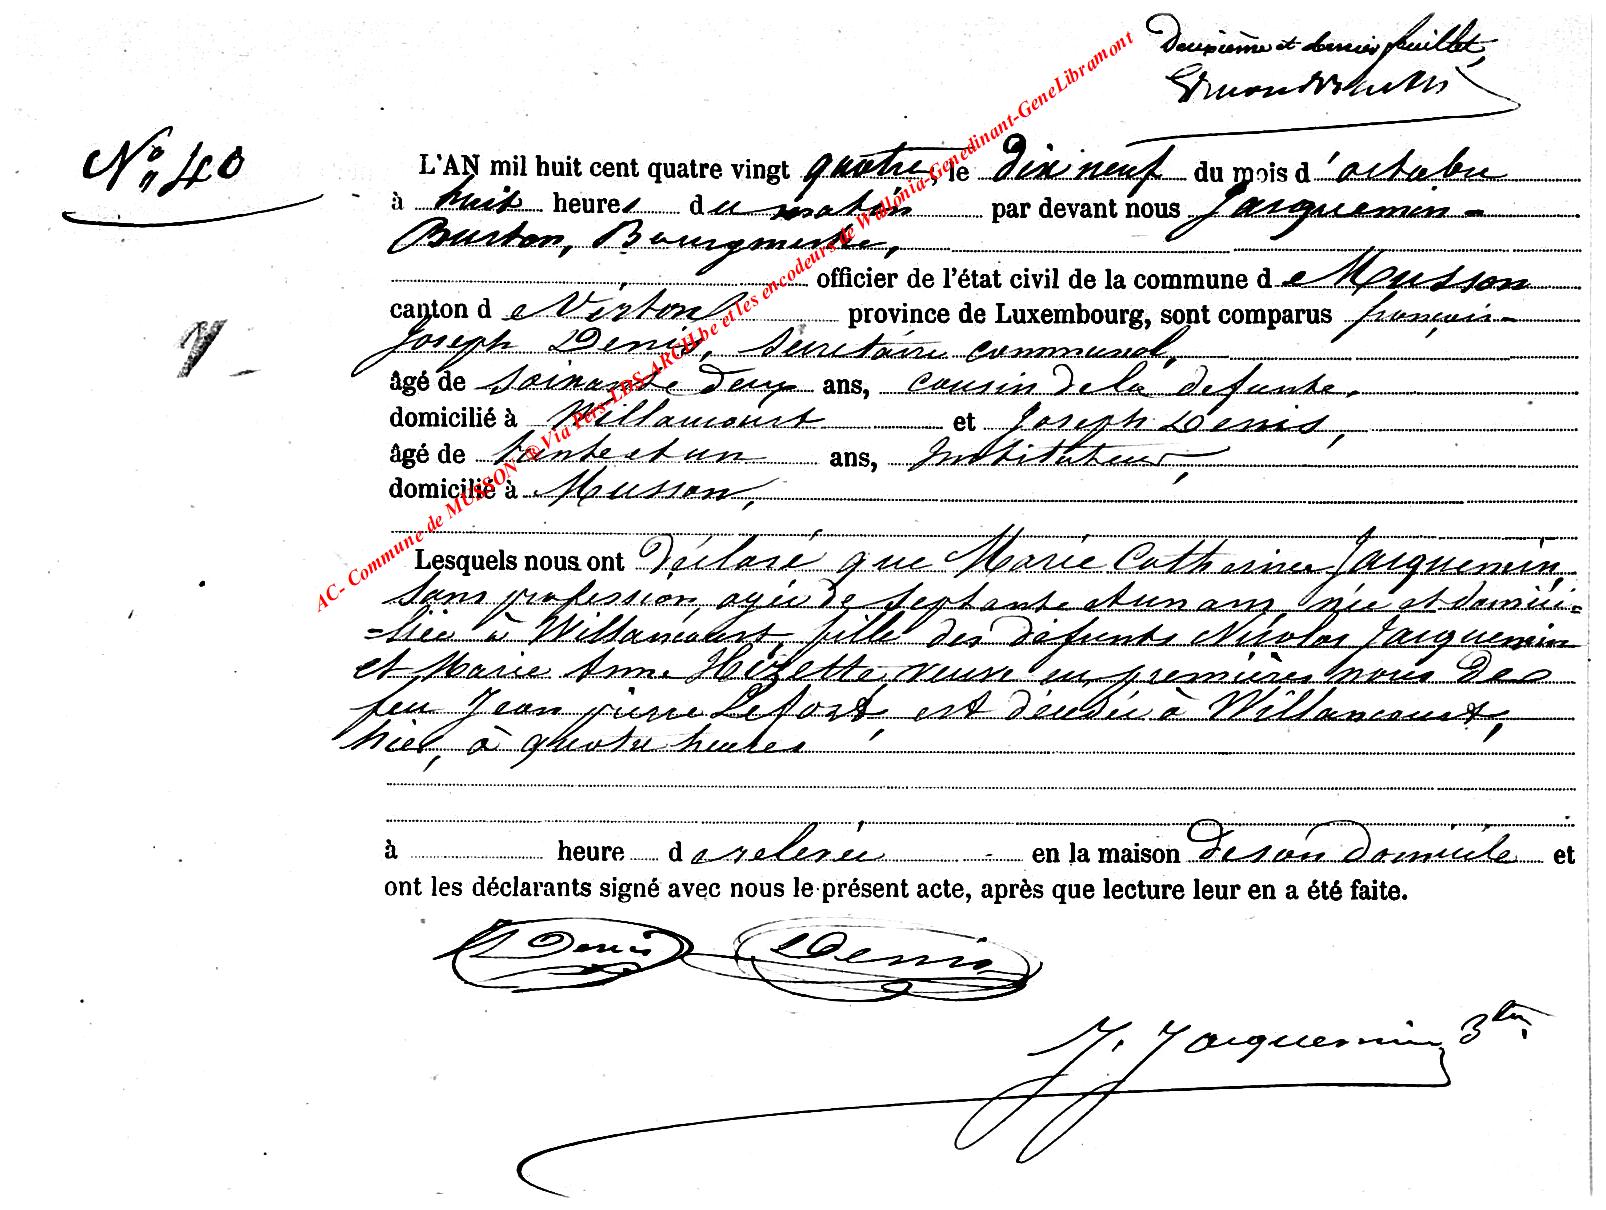 Deuxième et dernier feuillet,
N° 40
L'AN mil huit cent quatre vingt quatre, le dix neuf du mois d'octobre
à huit heures du matin par devant nous Jacquemin-
Burton, Bourgmestre,
officier de l'état civil de la commune de Musson
canton de Virton province de Luxembourg, sont comparus françois-
Joseph Denis, secrétaire communal,
âgé de soixante deux ans, cousin de la défunte,
domicilié à Willancourt et Joseph Denis,
âgé de trente et un ans, Instituteur,
domicilié à Musson,
Lesquels nous ont déclaré que Marie Catherine Jacquemin,
sans profession, agée de septante et un ans, née et domici-
-liée à Willancourt, fille des défunts Nicolas Jacquemin
et Marie Anne Hizette, veuve en premières noces de
feu Jean pierre Lefort, est décédée à Willancourt,
hier, à quatre heures
à heure de relevée en la maison de son domicile et
ont les déclarants signé avec nous le présent acte, après que lecture leur en a été faite.
Denis Denis
J. Jacquemin
AC- Commune de MUSSON ® Via Pers-LDS-ARCH.be et les encodeurs de Wallonia-Genedinant-GeneLibramont